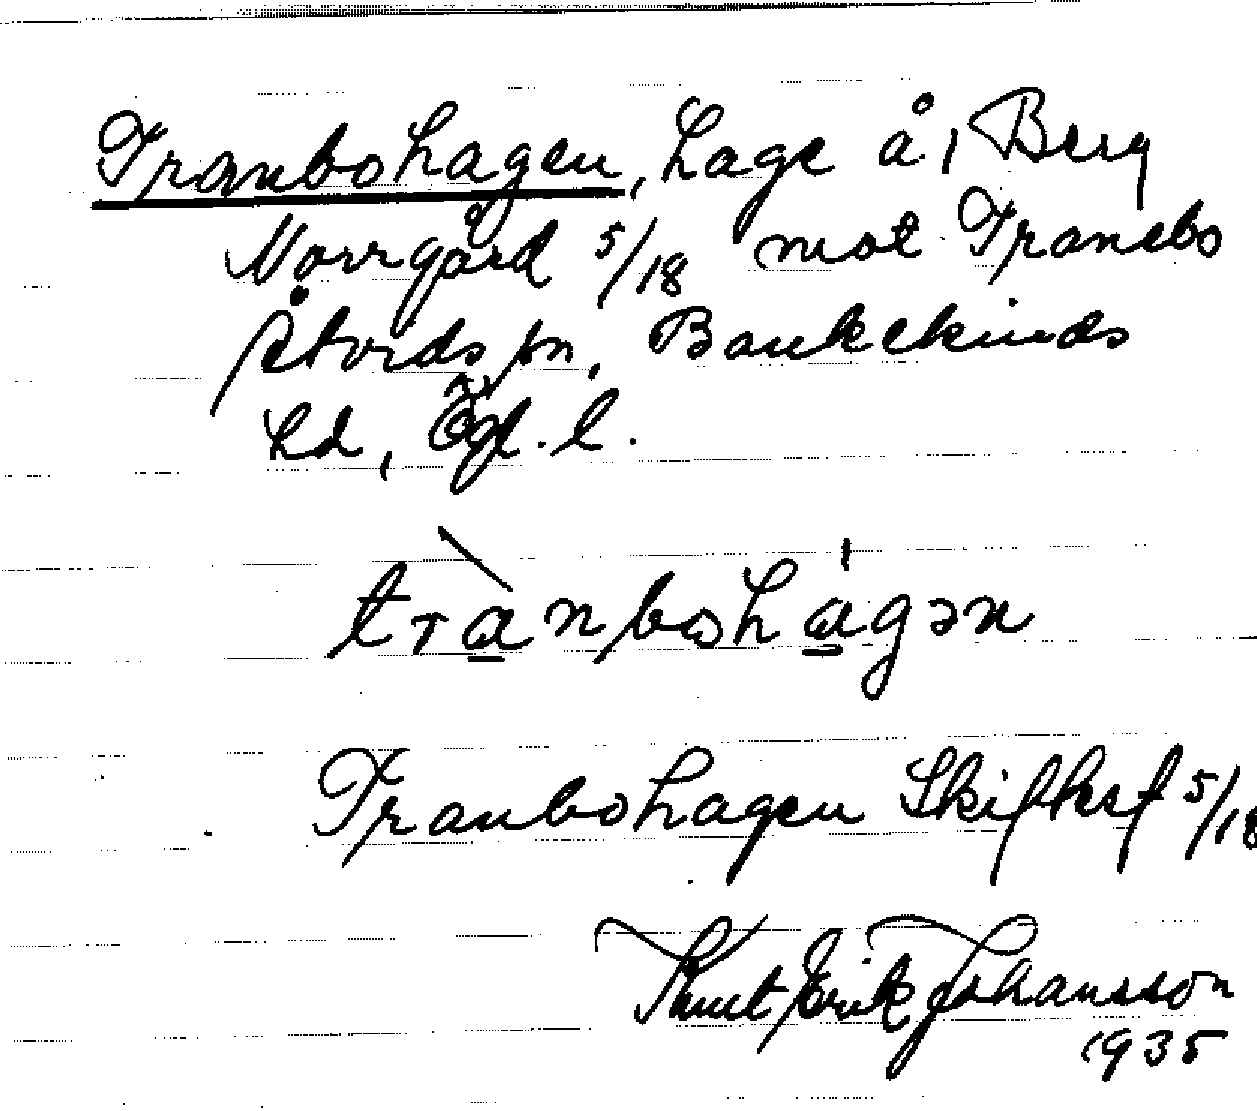 Tranbohagen, hage å, Berg
Norrgård 5/18 mot Transbo
Åtvids sn, Bankekinds
hd, Ögl. l.
trànbohágən
Tranbohagen Skifksf 5/18
Knut Erik Johansson
1935